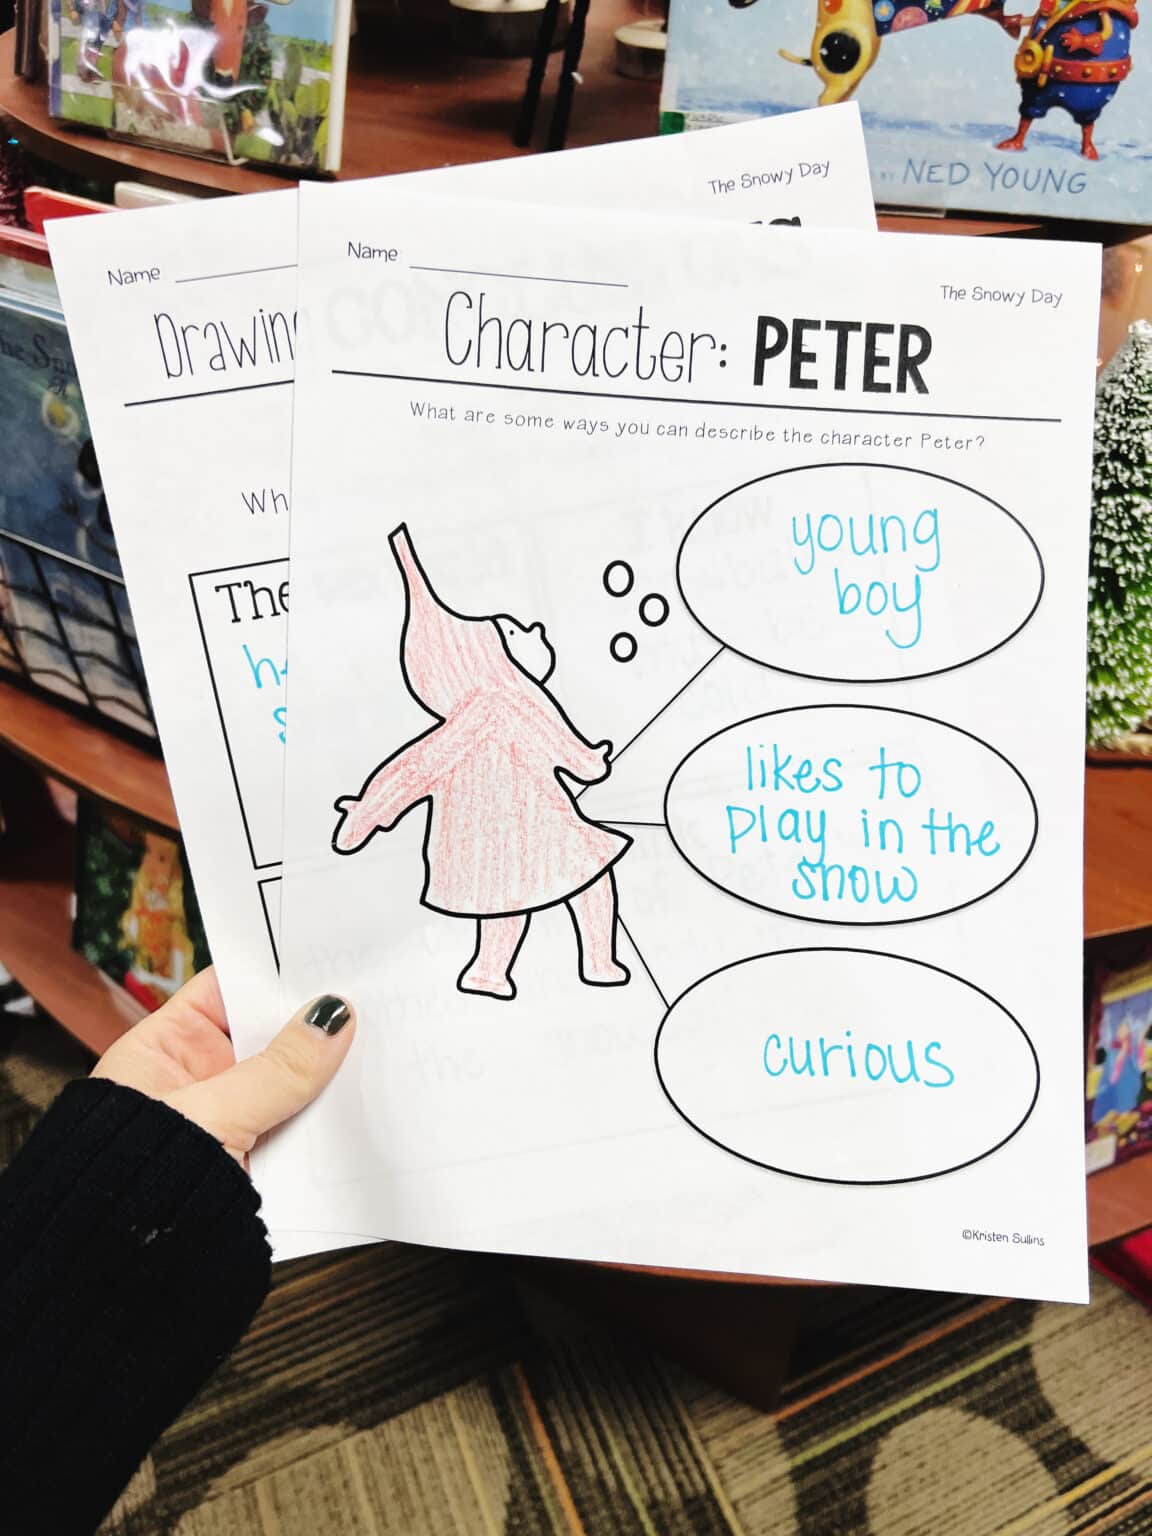 NED YOUNG
The Snowy Day
Name
Drawing
Wh
The
Name
The Snowy Day
Character: PETER
What are some ways you can describe the character Peter?
young
boy
likes to
play in the
snow
curious
©Kristen Sullins